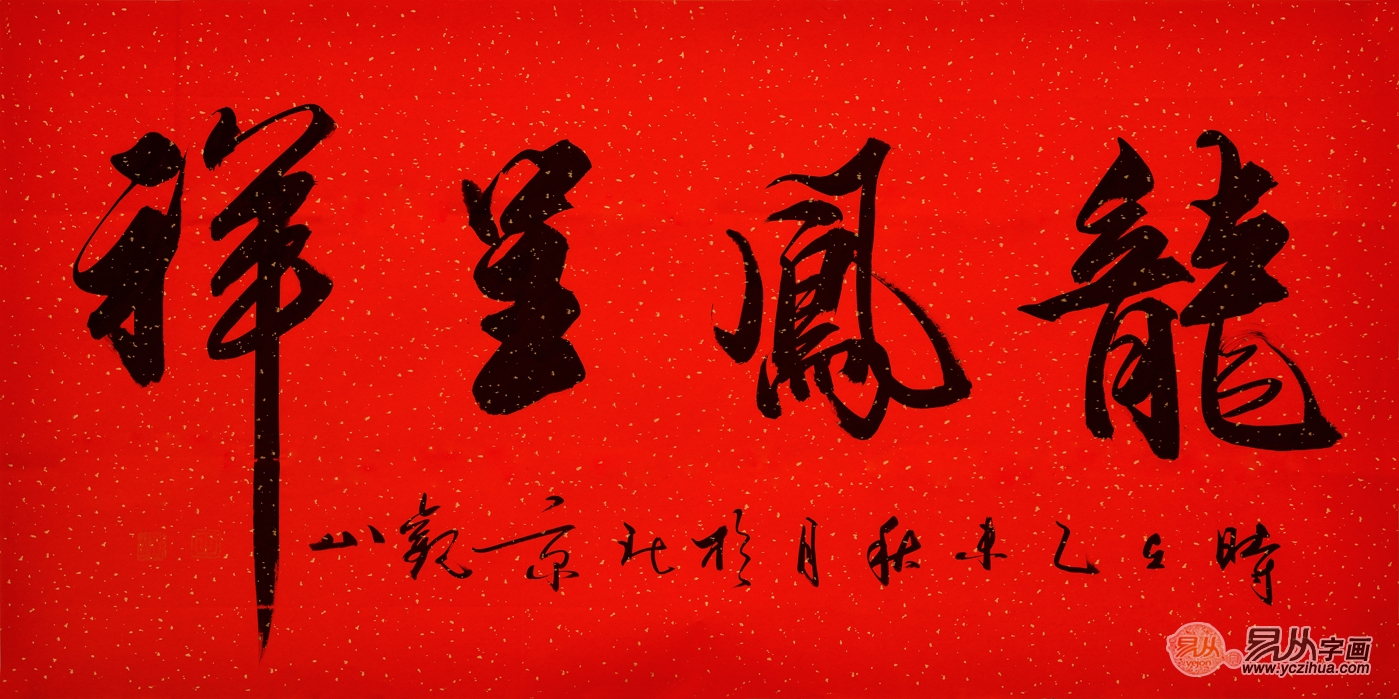 龍鳳呈祥
時在乙未秋月於北京觀山
易从
yicon
易从字画
www.yczihua.com